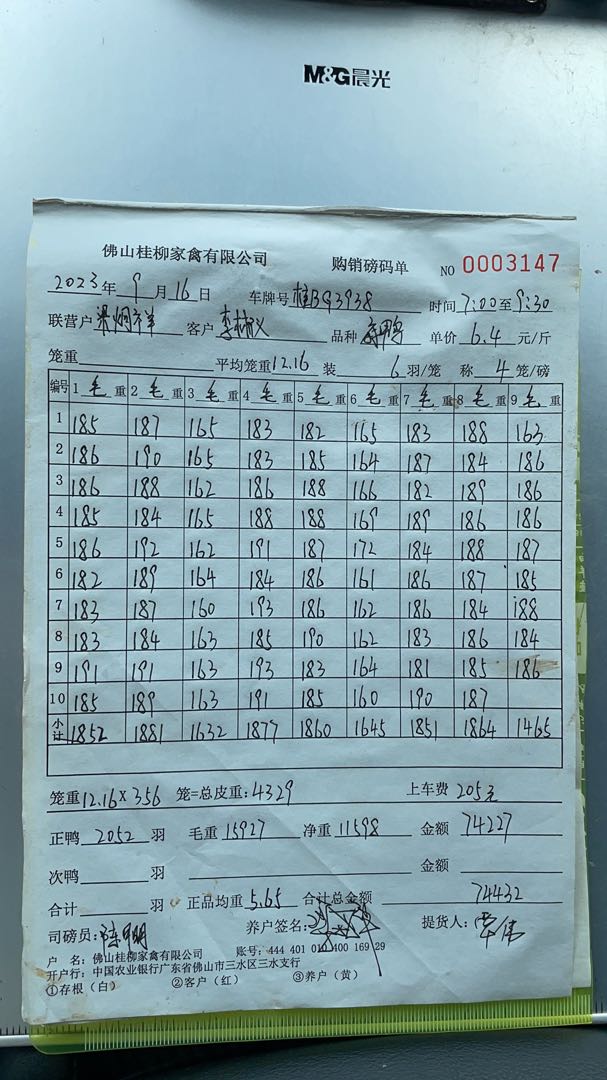 M&G晨光
佛山桂柳家禽有限公司 购销磅码单 NO 0003147
2023年 9月16日 车牌号 桂BG3938 时间 7:00至9:30
联营户 客户 品种 单价 6.4 元/斤
笼重 平均笼重12.16 装 6 羽/笼 称 4 笼/磅
编号 1 毛重 2 毛重 3 毛重 4 毛重 5 毛重 6 毛重 7 毛重 8 毛重 9 毛重
1 185 187 165 183 182 165 183 188 163
2 186 190 165 183 185 164 187 184 186
3 186 188 162 186 188 166 182 189 186
4 185 184 165 188 188 169 189 186 186
5 186 192 162 191 187 172 184 188 187
6 182 189 164 184 186 161 186 187 185
7 183 187 160 193 186 162 186 184 188
8 183 184 163 185 190 162 183 186 184
9 191 191 163 193 183 164 181 185 186
10 185 189 163 191 185 160 190 187
小计 1852 1881 1632 1877 1860 1645 1851 1864 1465
笼重12.16×356 笼=总皮重:4329 上车费 205元
正鸭 2052 羽 毛重 15927 净重 11598 金额 74227
次鸭 羽 金额
合计 羽 正品均重 5.65 合计总金额 74432
司磅员: 养户签名: 提货人:
户 名: 佛山桂柳家禽有限公司 账号: 444 401 010 400 169 29
开户行: 中国农业银行广东省佛山市三水区三水支行
①存根(白) ②客户(红) ③养户(黄)